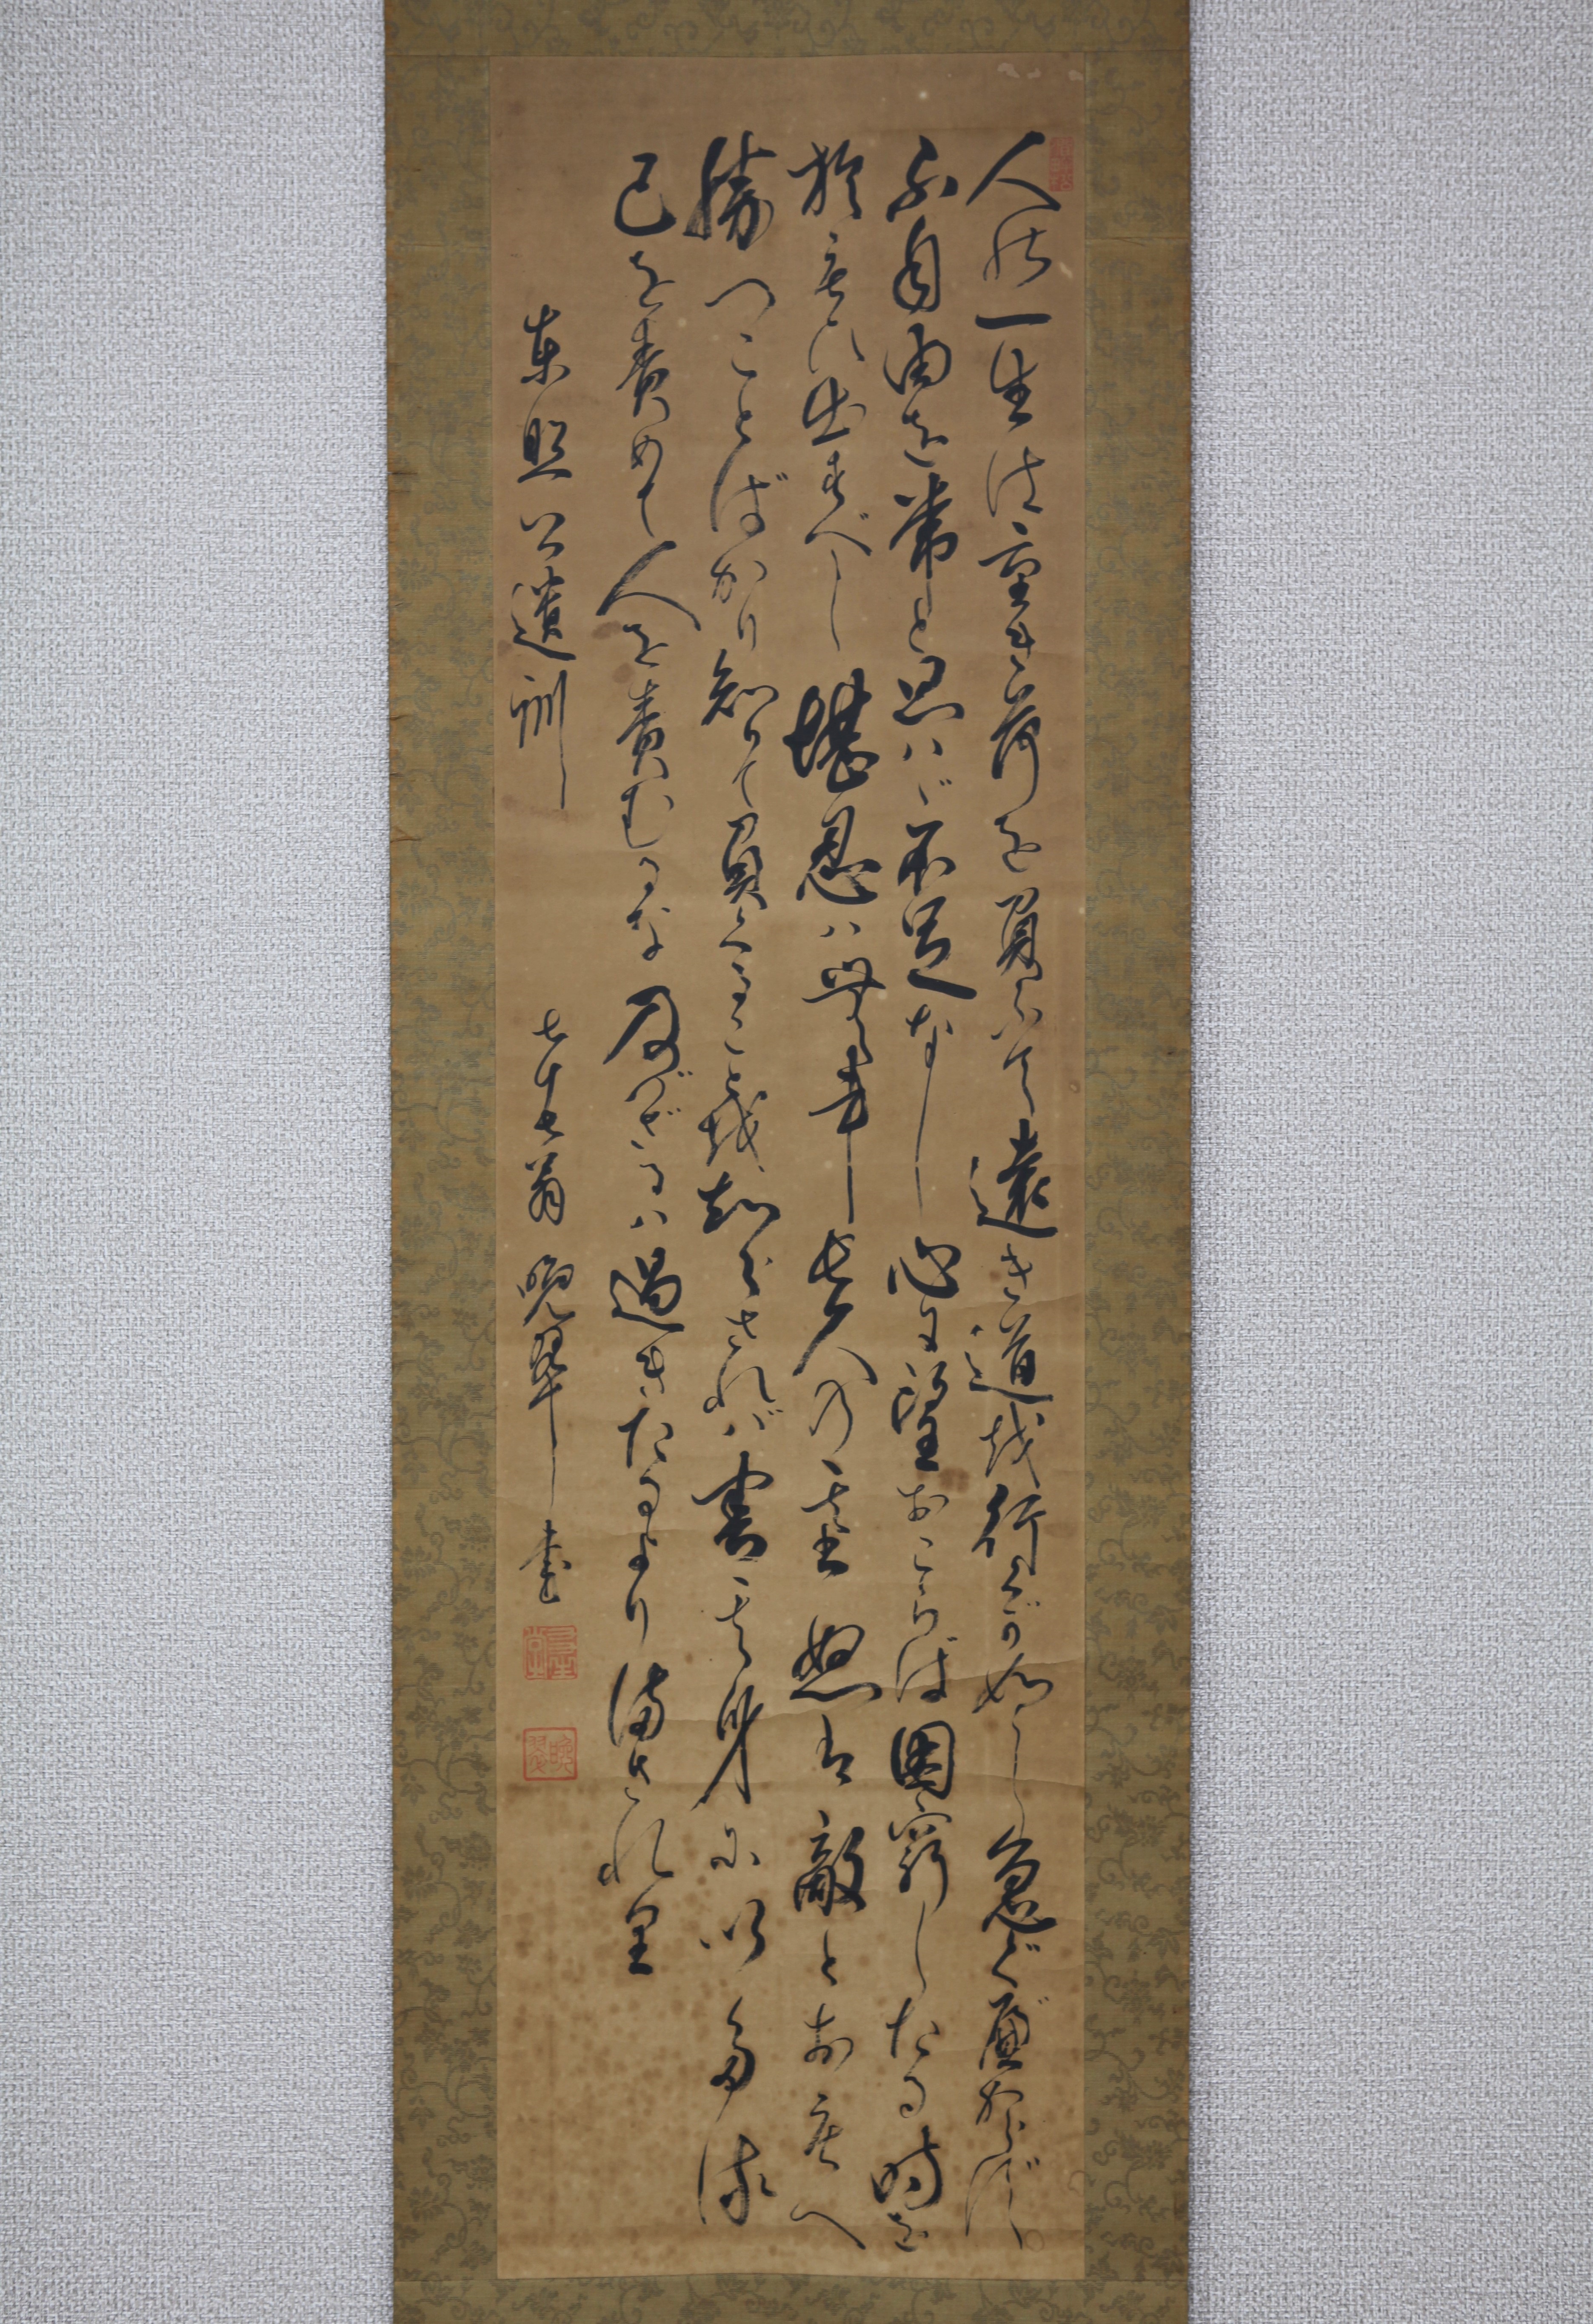 人の一生は重き荷を負ひて遠き道を行くが如し急ぐべからず。
不自由を常と思ハゞ不足なし心に望おこらば困窮したる時を
於も以出すべし堪忍ハ無事長久の基怒は敵とおもへ
勝つことばかり知りて負くることを知らざれバ害其身に以多る
己を責めて人を責むるな及バざるハ過ぎたるよりまされり
東照公遺訓
七十七翁 晩翠書
晩翠